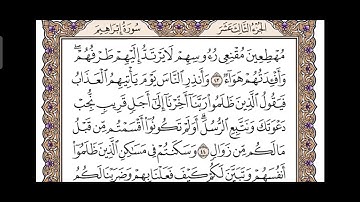 سُورَةُ إِبْرَاهِيم
الجُزْءُ الثَّالِثَ عَشَرَ
مُهْطِعِينَ مُقْنِعِي رُءُوسِهِمْ لَا يَرْتَدُّ إِلَيْهِمْ طَرْفُهُمْ
وَأَفْـِٔدَتُهُمْ هَوَآءٌ ٤٣ وَأَنذِرِ ٱلنَّاسَ يَوْمَ يَأْتِيهِمُ ٱلْعَذَابُ
فَيَقُولُ ٱلَّذِينَ ظَلَمُوا۟ رَبَّنَآ أَخِّرْنَآ إِلَىٰٓ أَجَلٍ قَرِيبٍ نُّجِبْ
دَعْوَتَكَ وَنَتَّبِعِ ٱلرُّسُلَ أَوَلَمْ تَكُونُوٓا۟ أَقْسَمْتُم مِّن قَبْلُ
مَا لَكُم مِّن زَوَالٍ ٤٤ وَسَكَنتُمْ فِى مَسَٰكِنِ ٱلَّذِينَ ظَلَمُوٓا۟
أَنفُسَهُمْ وَتَبَيَّنَ لَكُمْ كَيْفَ فَعَلْنَا بِهِمْ وَضَرَبْنَا لَكُمُ